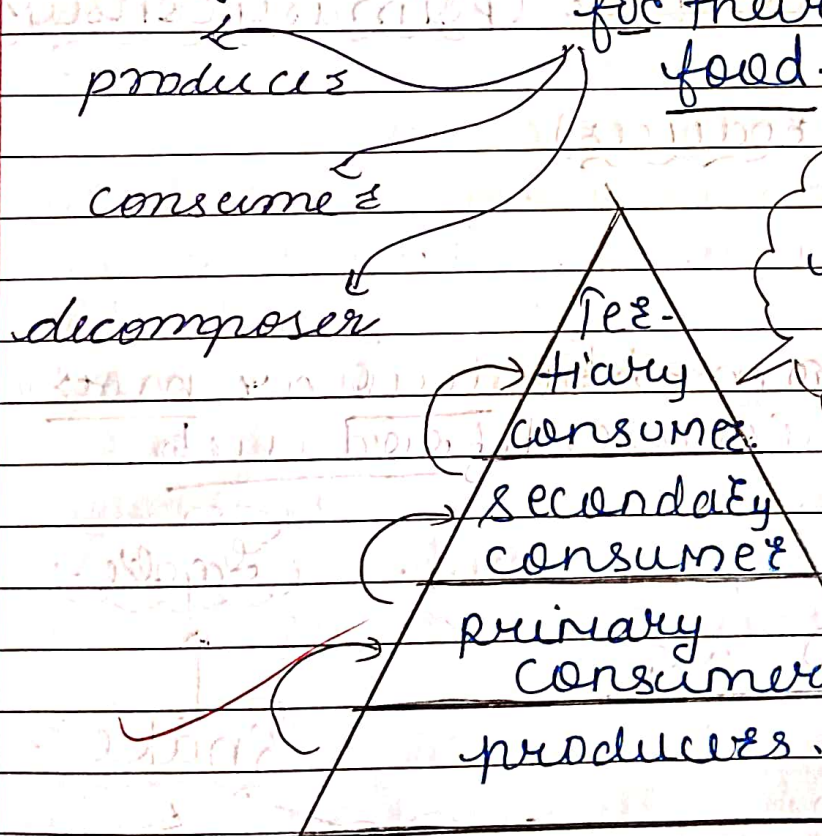 for their
food.
producer
consumer
decomposer
Ter-
tiary
consumer.
secondary
consumer
primary
consumer
producers.